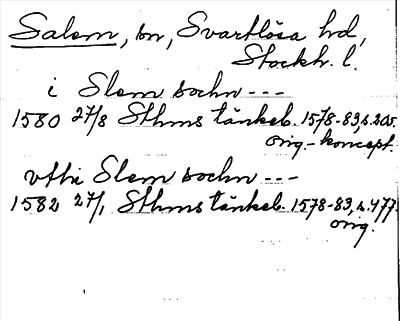 Salem, sn, Svartlösa hd,
Stockh. l.
i Slem sochn ---
1580 27/8 Sthms tänkeb. 1578-83, s. 205.
orig.-koncept.
vthi Slem sochn ---
1582 27/1 Sthms tänkeb. 1578-83, s. 477.
orig.